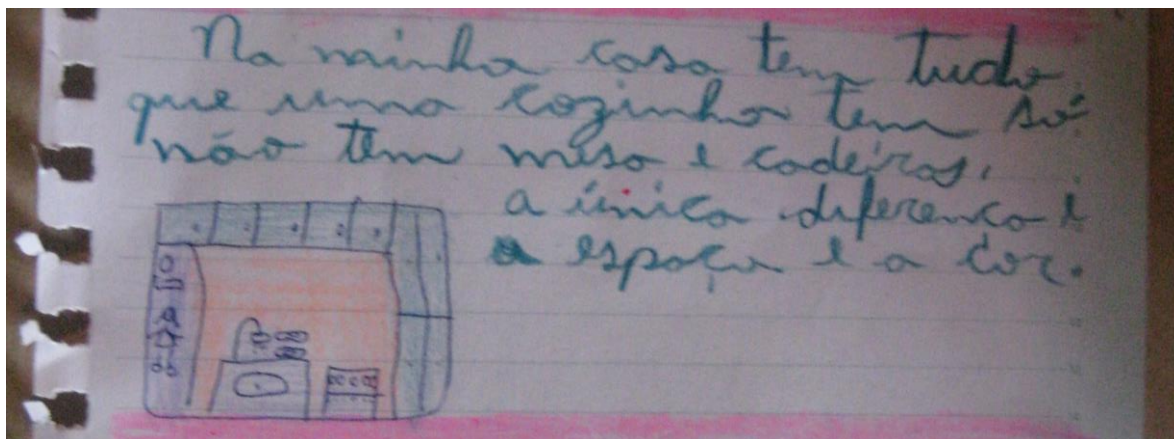 Na minha casa tem tudo
que uma cozinha tem só
não tem mesa e cadeiras,
a única diferença é
a espaço e a cor.